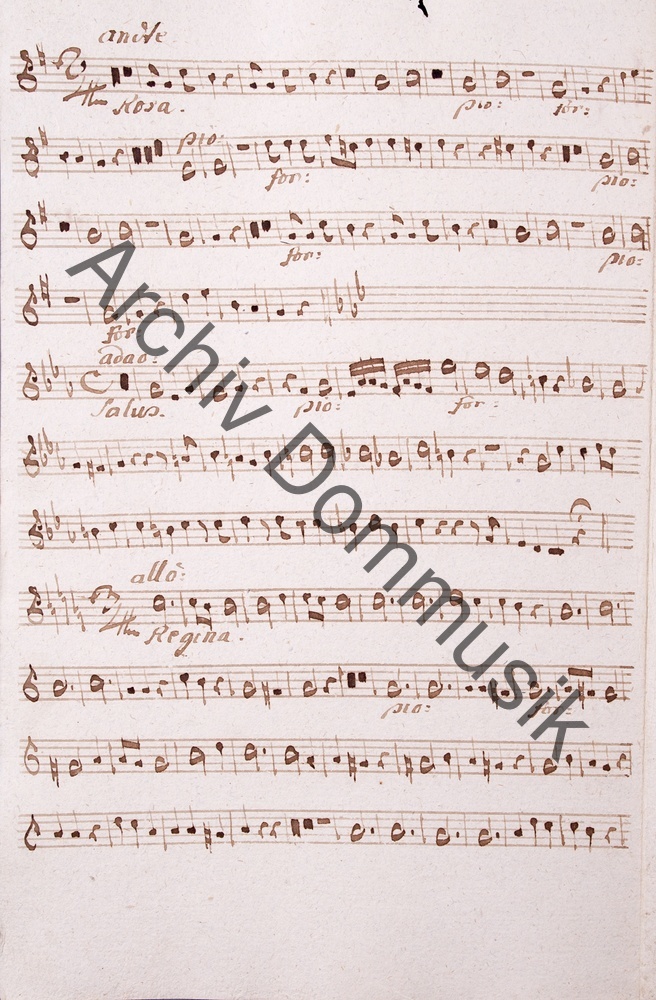 andte
Rosa.
pio: for:
pio:
for: pio:
for: pio:
for
adag:
Salus. pio: for:
allo:
Regina.
pio: for:
Archiv Dommusik